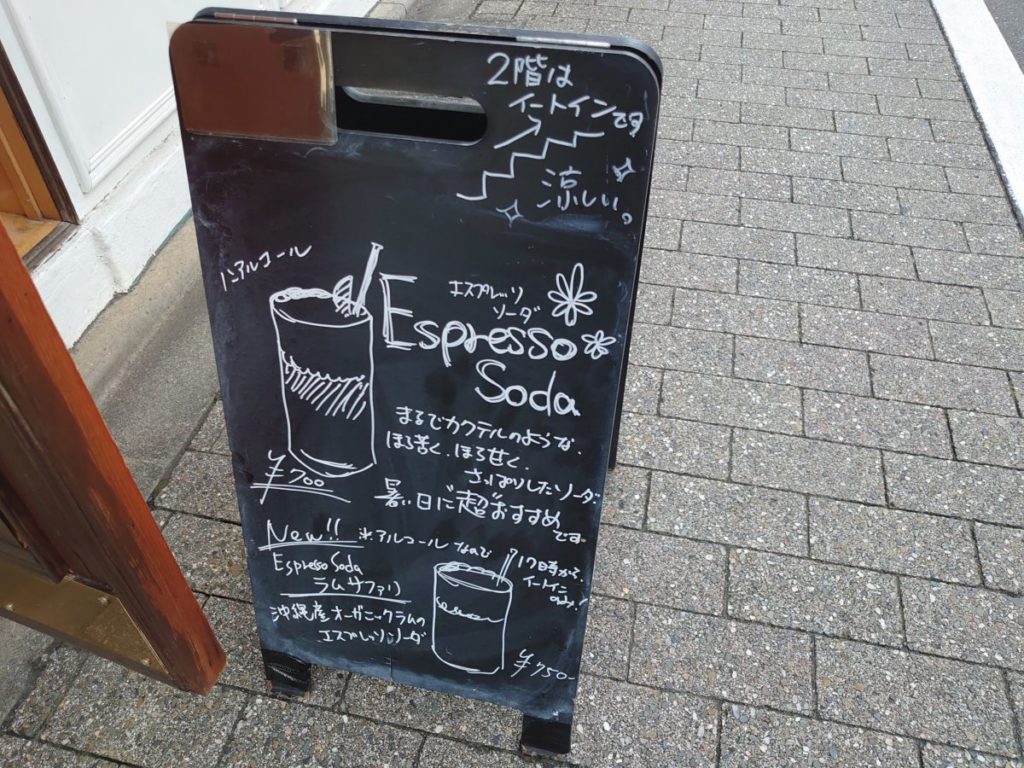 2階は
イートインです
涼しい。
ノンアルコール
エスプレッソ
ソーダ
Espresso
Soda
まるでカクテルのような、
ほろ苦く、ほろ甘く、
さっぱりしたソーダ
暑い日に超おすすめ
です。
¥700
New!!
※アルコールなので
17時から、
イートイン
only!
Espresso Soda
ラムサファリ
沖縄産オーガニックラムの
エスプレッソソーダ
¥750-